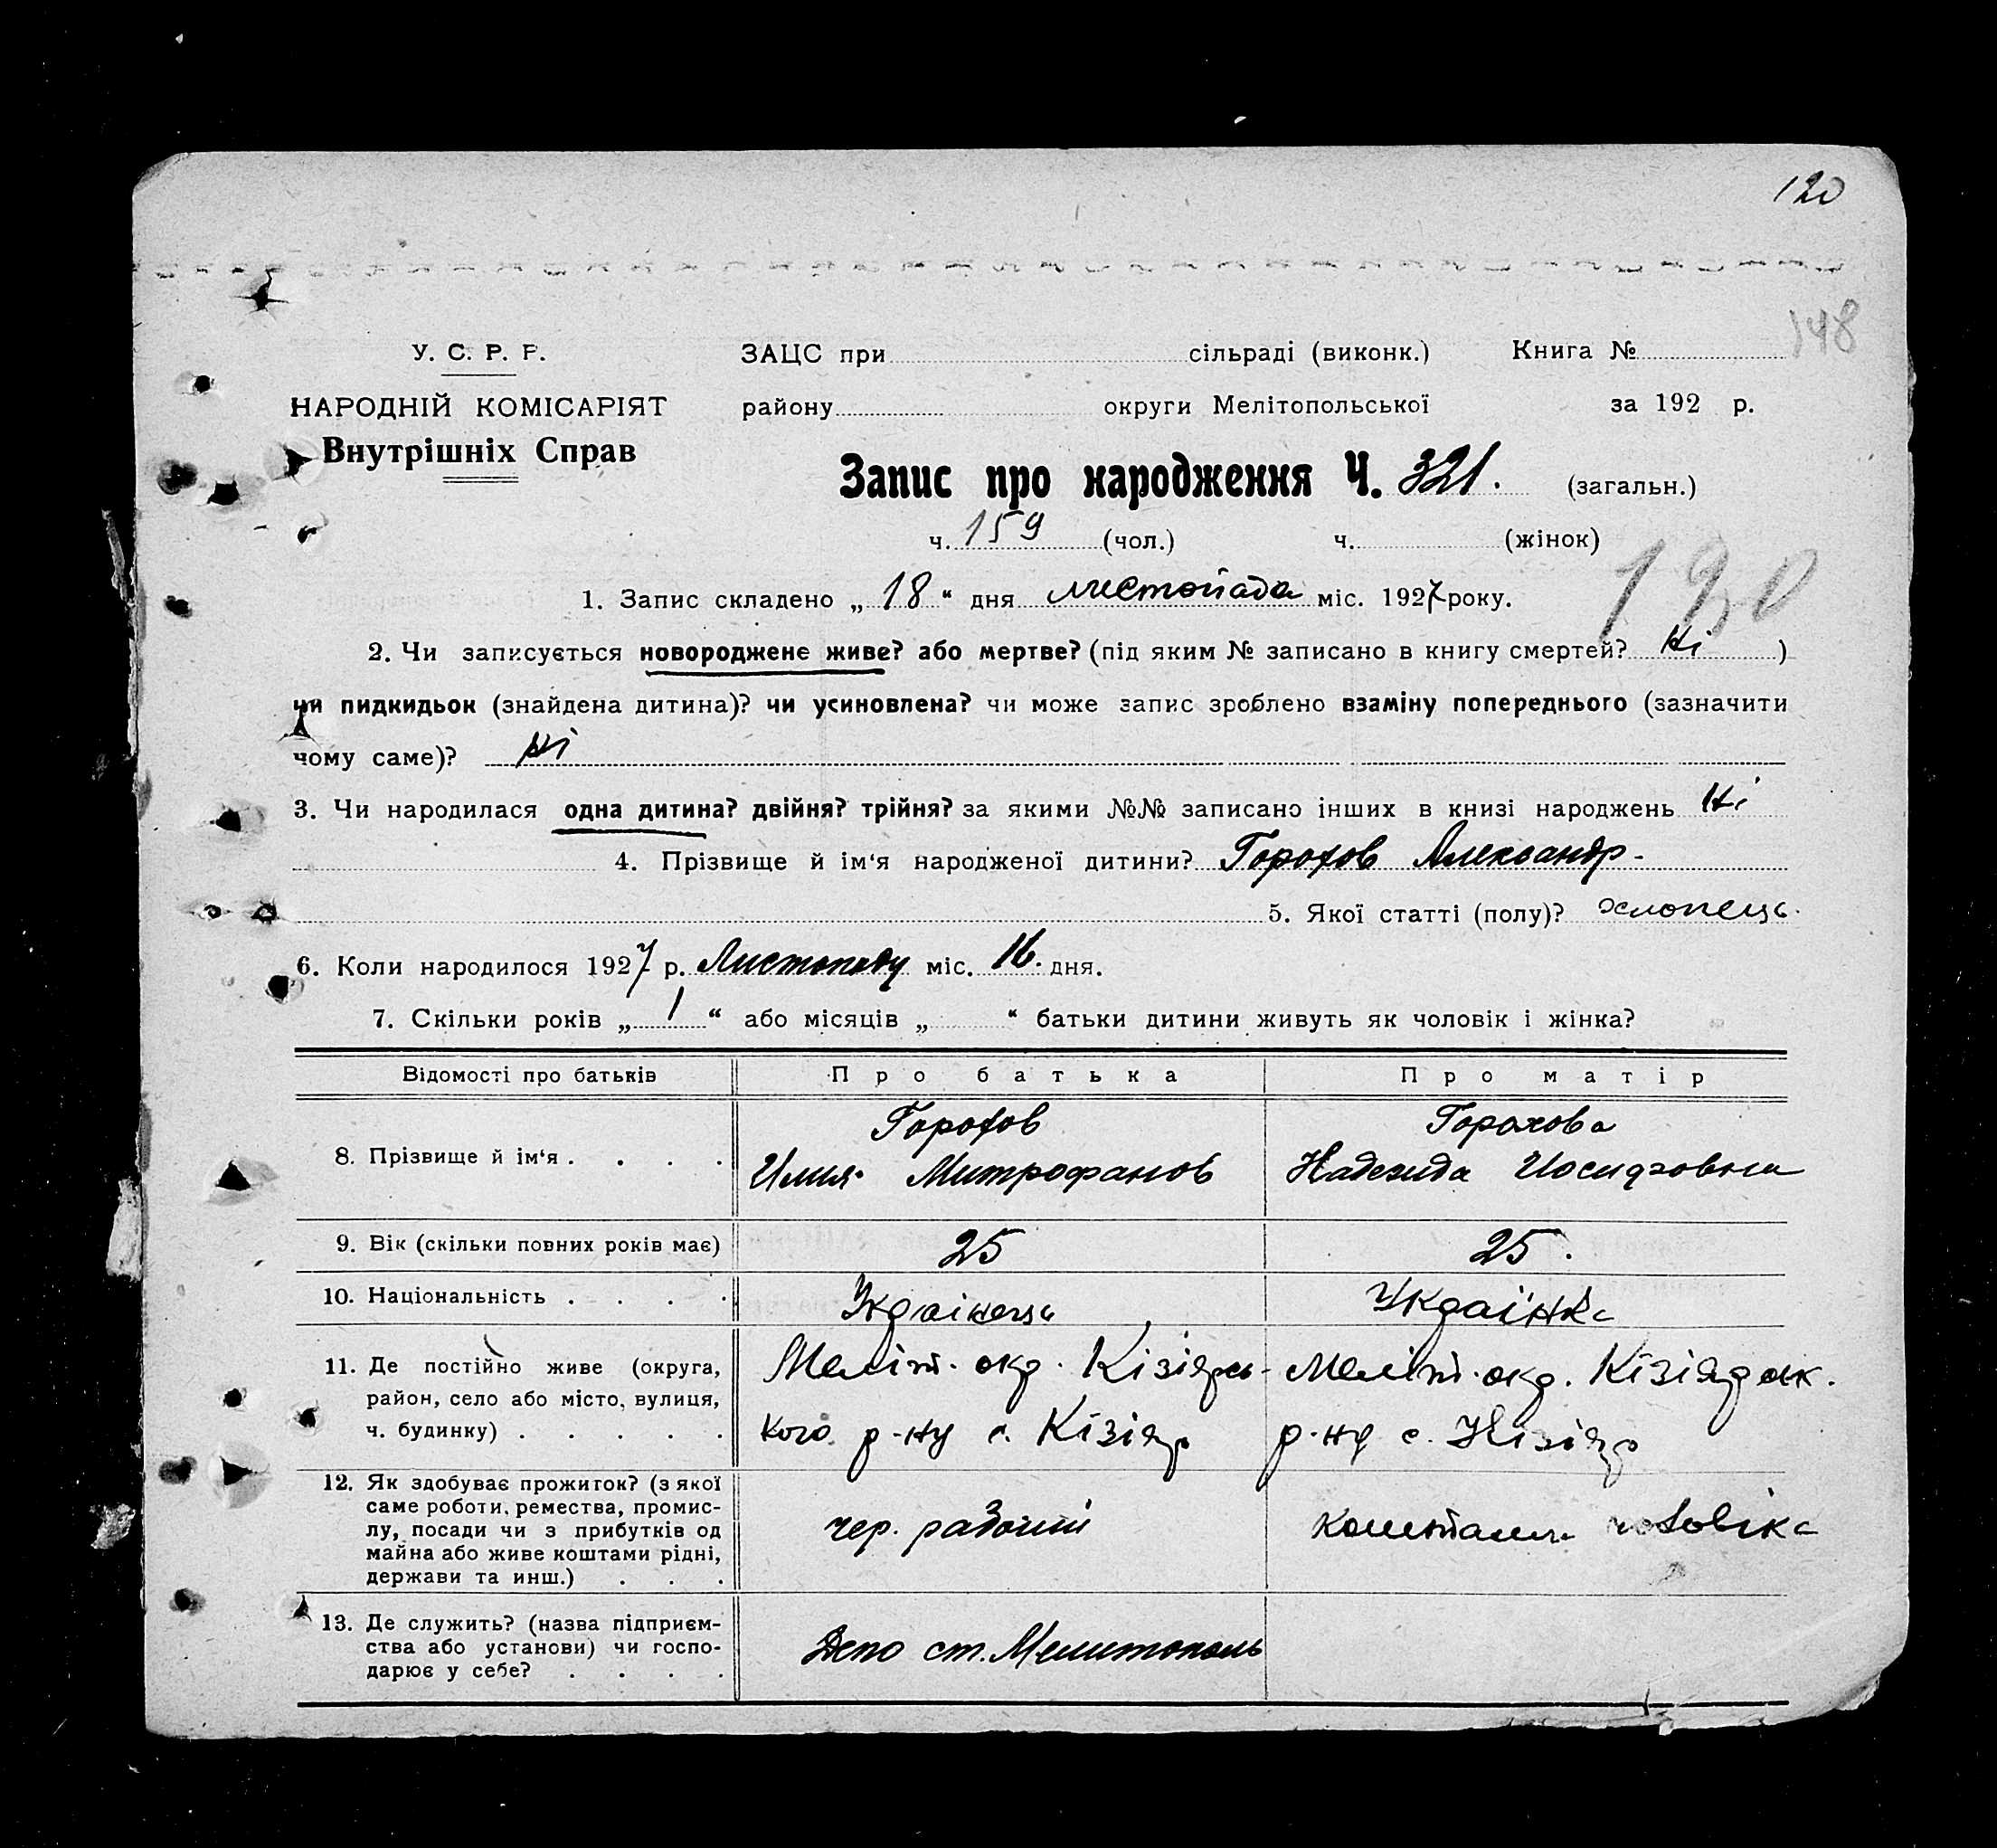 120
148
У. С. Р. Р. ЗАЦС при сільраді (виконк.) Книга №
НАРОДНІЙ КОМІСАРІЯТ району округи Мелітопольської за 192 р.
Внутрішніх Справ
Запис про народження Ч. 321. (загальн.)
ч. 159 (чол.) ч. (жінок)
190
1. Запис складено „18“ дня листопада міс. 1927 року.
2. Чи записується новороджене живе? або мертве? (під яким № записано в книгу смертей? Ні )
чи пидкидьок (знайдена дитина)? чи усиновлена? чи може запис зроблено взаміну попереднього (зазначити
чому саме)? Ні
3. Чи народилася одна дитина? двійня? трійня? за якими №№ записано інших в книзі народжень Ні
4. Прізвище й ім‘я народженої дитини? Горохов Александр -
5. Якої статті (полу)? хлопець.
6. Коли народилося 1927 р. Листопаду міс. 16. дня.
7. Скільки років „1“ або місяців „ “ батьки дитини живуть як чоловік і жінка?
Відомості про батьків Про батька Про матір
8. Прізвище й ім‘я . . . .
Горохов
Илия Митрофанов
Горохова
Надежда Иосифовна
9. Вік (скільки повних років має) 25 25.
10. Національність . . . . Українець Українка
11. Де постійно живе (округа,
район, село або місто, вулиця,
ч. будинку) . . . . .
Меліт. окр. Кізіярсь-
кого р-ну с. Кізіяр
Меліт. окр. Кізіярськ.
р-ну с. Кізіяр
12. Як здобуває прожиток? (з якої
саме роботи, ремества, промис-
лу, посади чи з прибутків од
майна або живе коштами рідні,
держави та инш.) . . .
чер. рабочий
коштами чоловіка
13. Де служить? (назва підприєм-
ства або установи) чи госпо-
дарює у себе? . . . .
Депо ст. Мелитополь